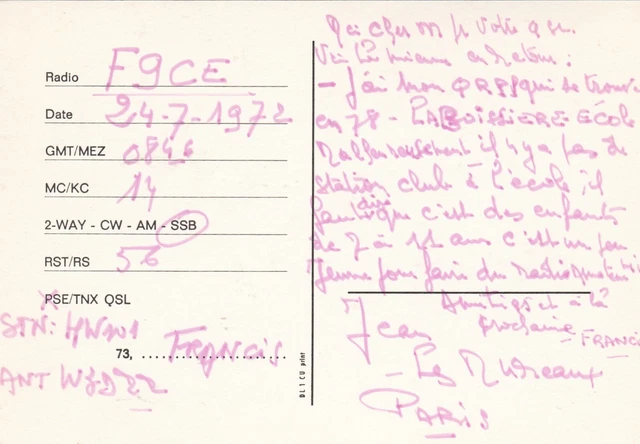 Radio F9CE
Date 24-7-1972
GMT/MEZ 0846
MC/KC 14
2-WAY - CW - AM - SSB
RST/RS 56
PSE/TNX QSL
STN: HW101
73, Francis
ANT W3DZZ
DL1CU print
cher OM votre
Voici la mienne en retour:
- J'ai mon qui se trouve
en 78 - LABOISSIERE-ECOLE
Malheureusement il n'y a pas de
station club à l'école; il
faut dire que c'est des enfants
de 7 à 11 ans c'est un peu
jeune pour faire du radioamateur
Amitiés et à la
prochaine - FRANCIS
Jean
- Les Mureaux
PARIS